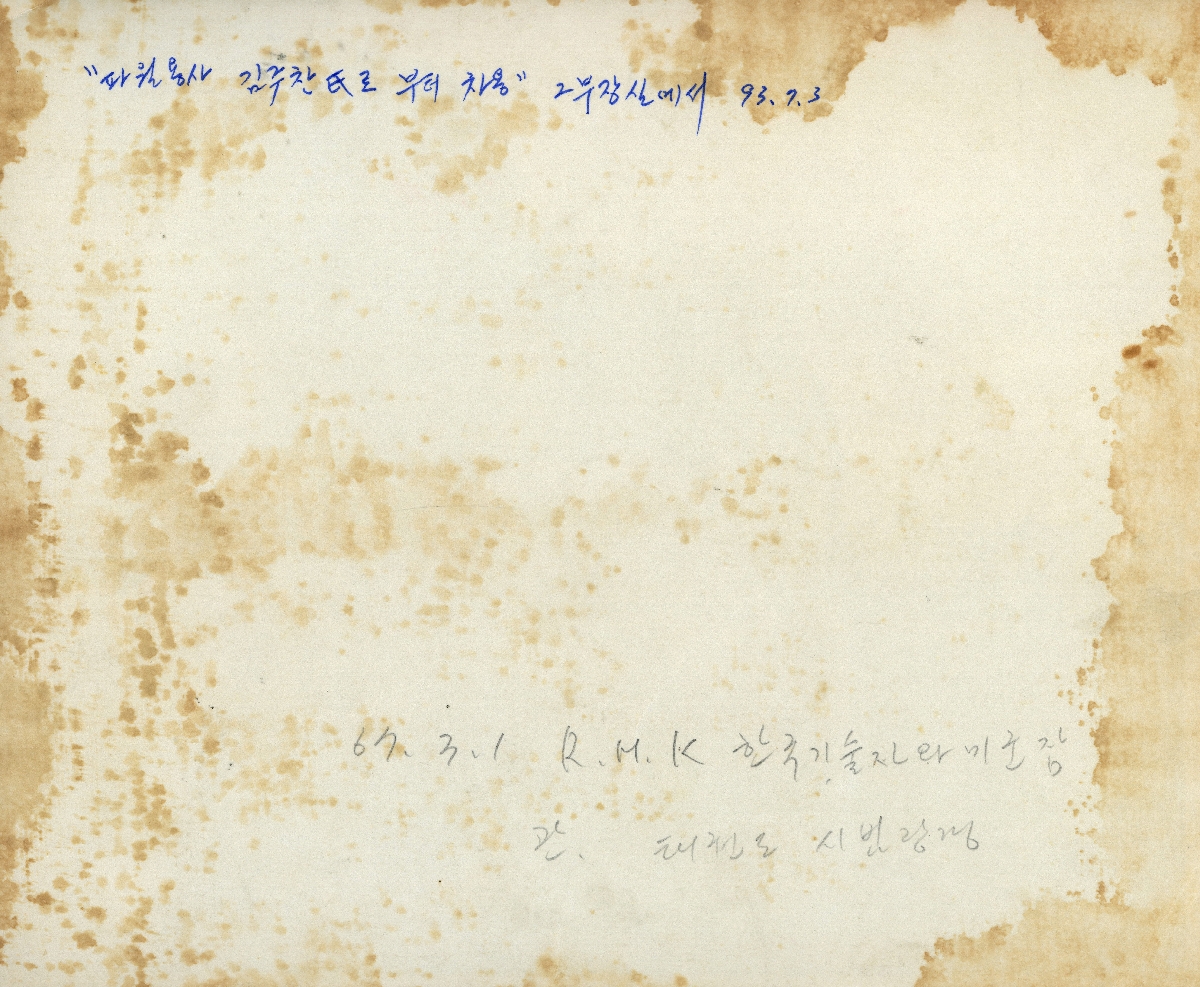 "파월용사 김주찬氏로 부터 차용" 2부장실에서 93.7.3
67. 3. 1 R.M.K 한국기술자와 미군장
관. 태권도 시범광경